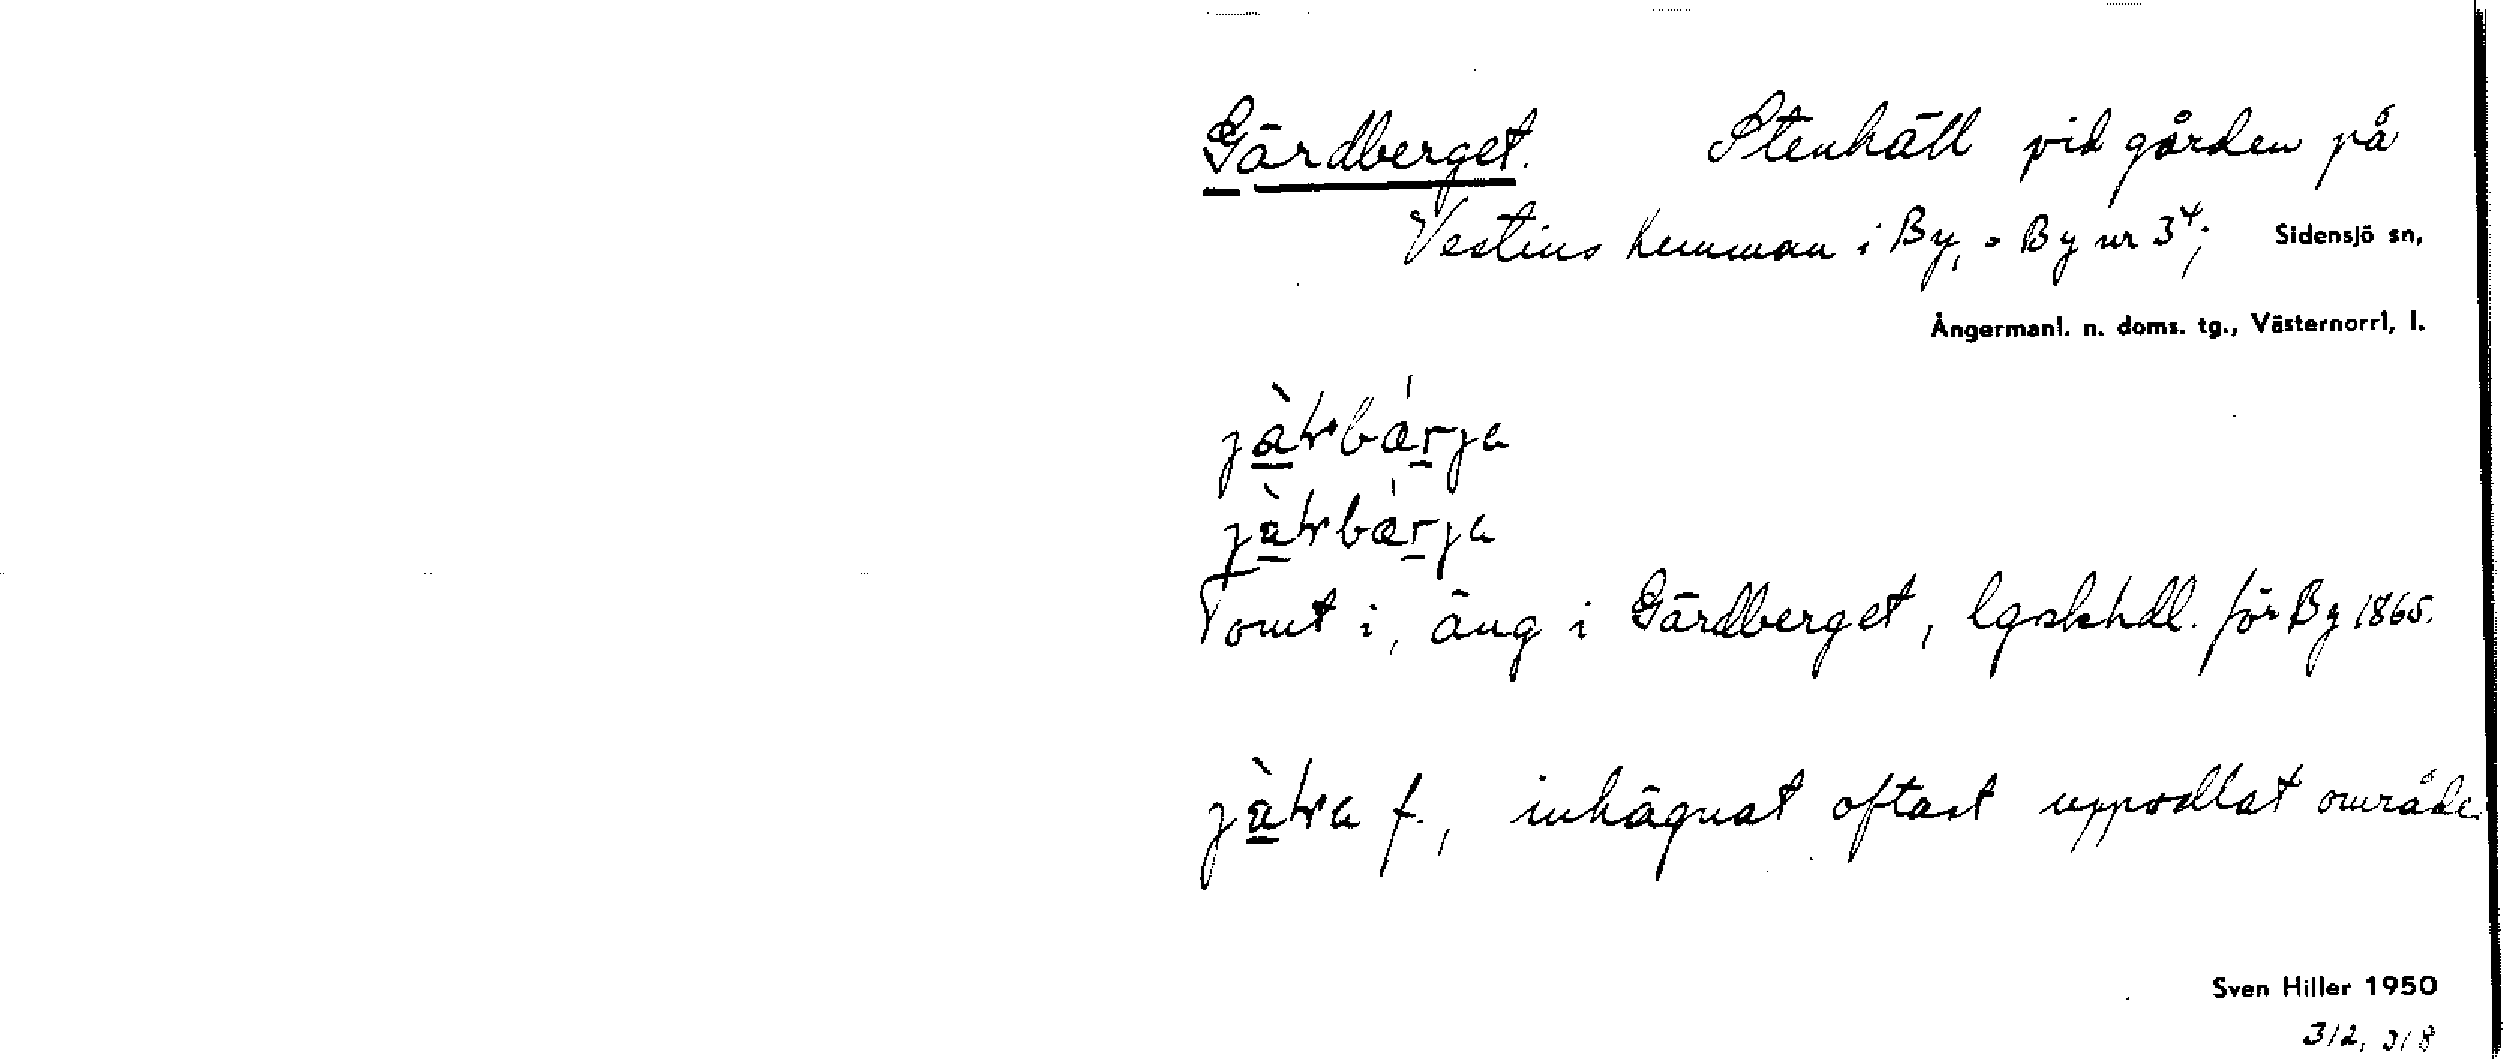 Gärdberget. Stenhäll vid gården på
Vestins hemman i By, = By nr 3⁴; Sidensjö sn,
Ångermanl. n. doms. tg., Västernorrl. l.
Tomt i, äng i Gärdberget, lgskhdl. för By 1865.
f., inhägnat oftast uppodlat område.
Sven Hiller 1950
312, 318